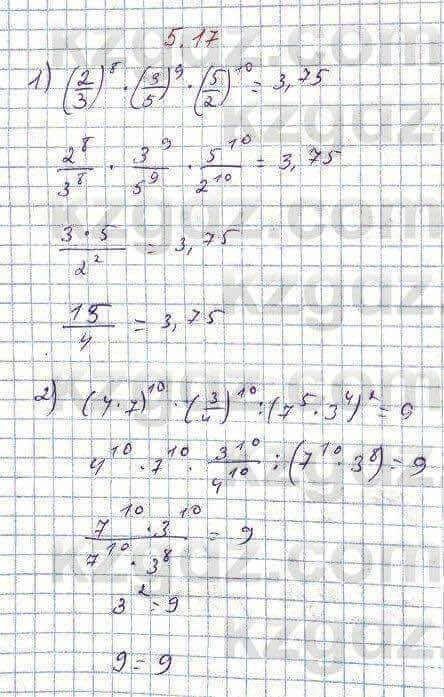 5.17
1) (2/3)^8 · (3/5)^9 · (5/2)^10 = 3,75
2^8/3^8 · 3^9/5^9 · 5^10/2^10 = 3,75
3·5/2^2 = 3,75
15/4 = 3,75
2) (4·7)^10 · (3/4)^10 : (7^5 · 3^4)^2 = 9
4^10 · 7^10 · 3^10/4^10 : (7^10 · 3^8) = 9
7^10 · 3^10/7^10 · 3^8 = 9
3^2 = 9
9 = 9
kzgdz.com